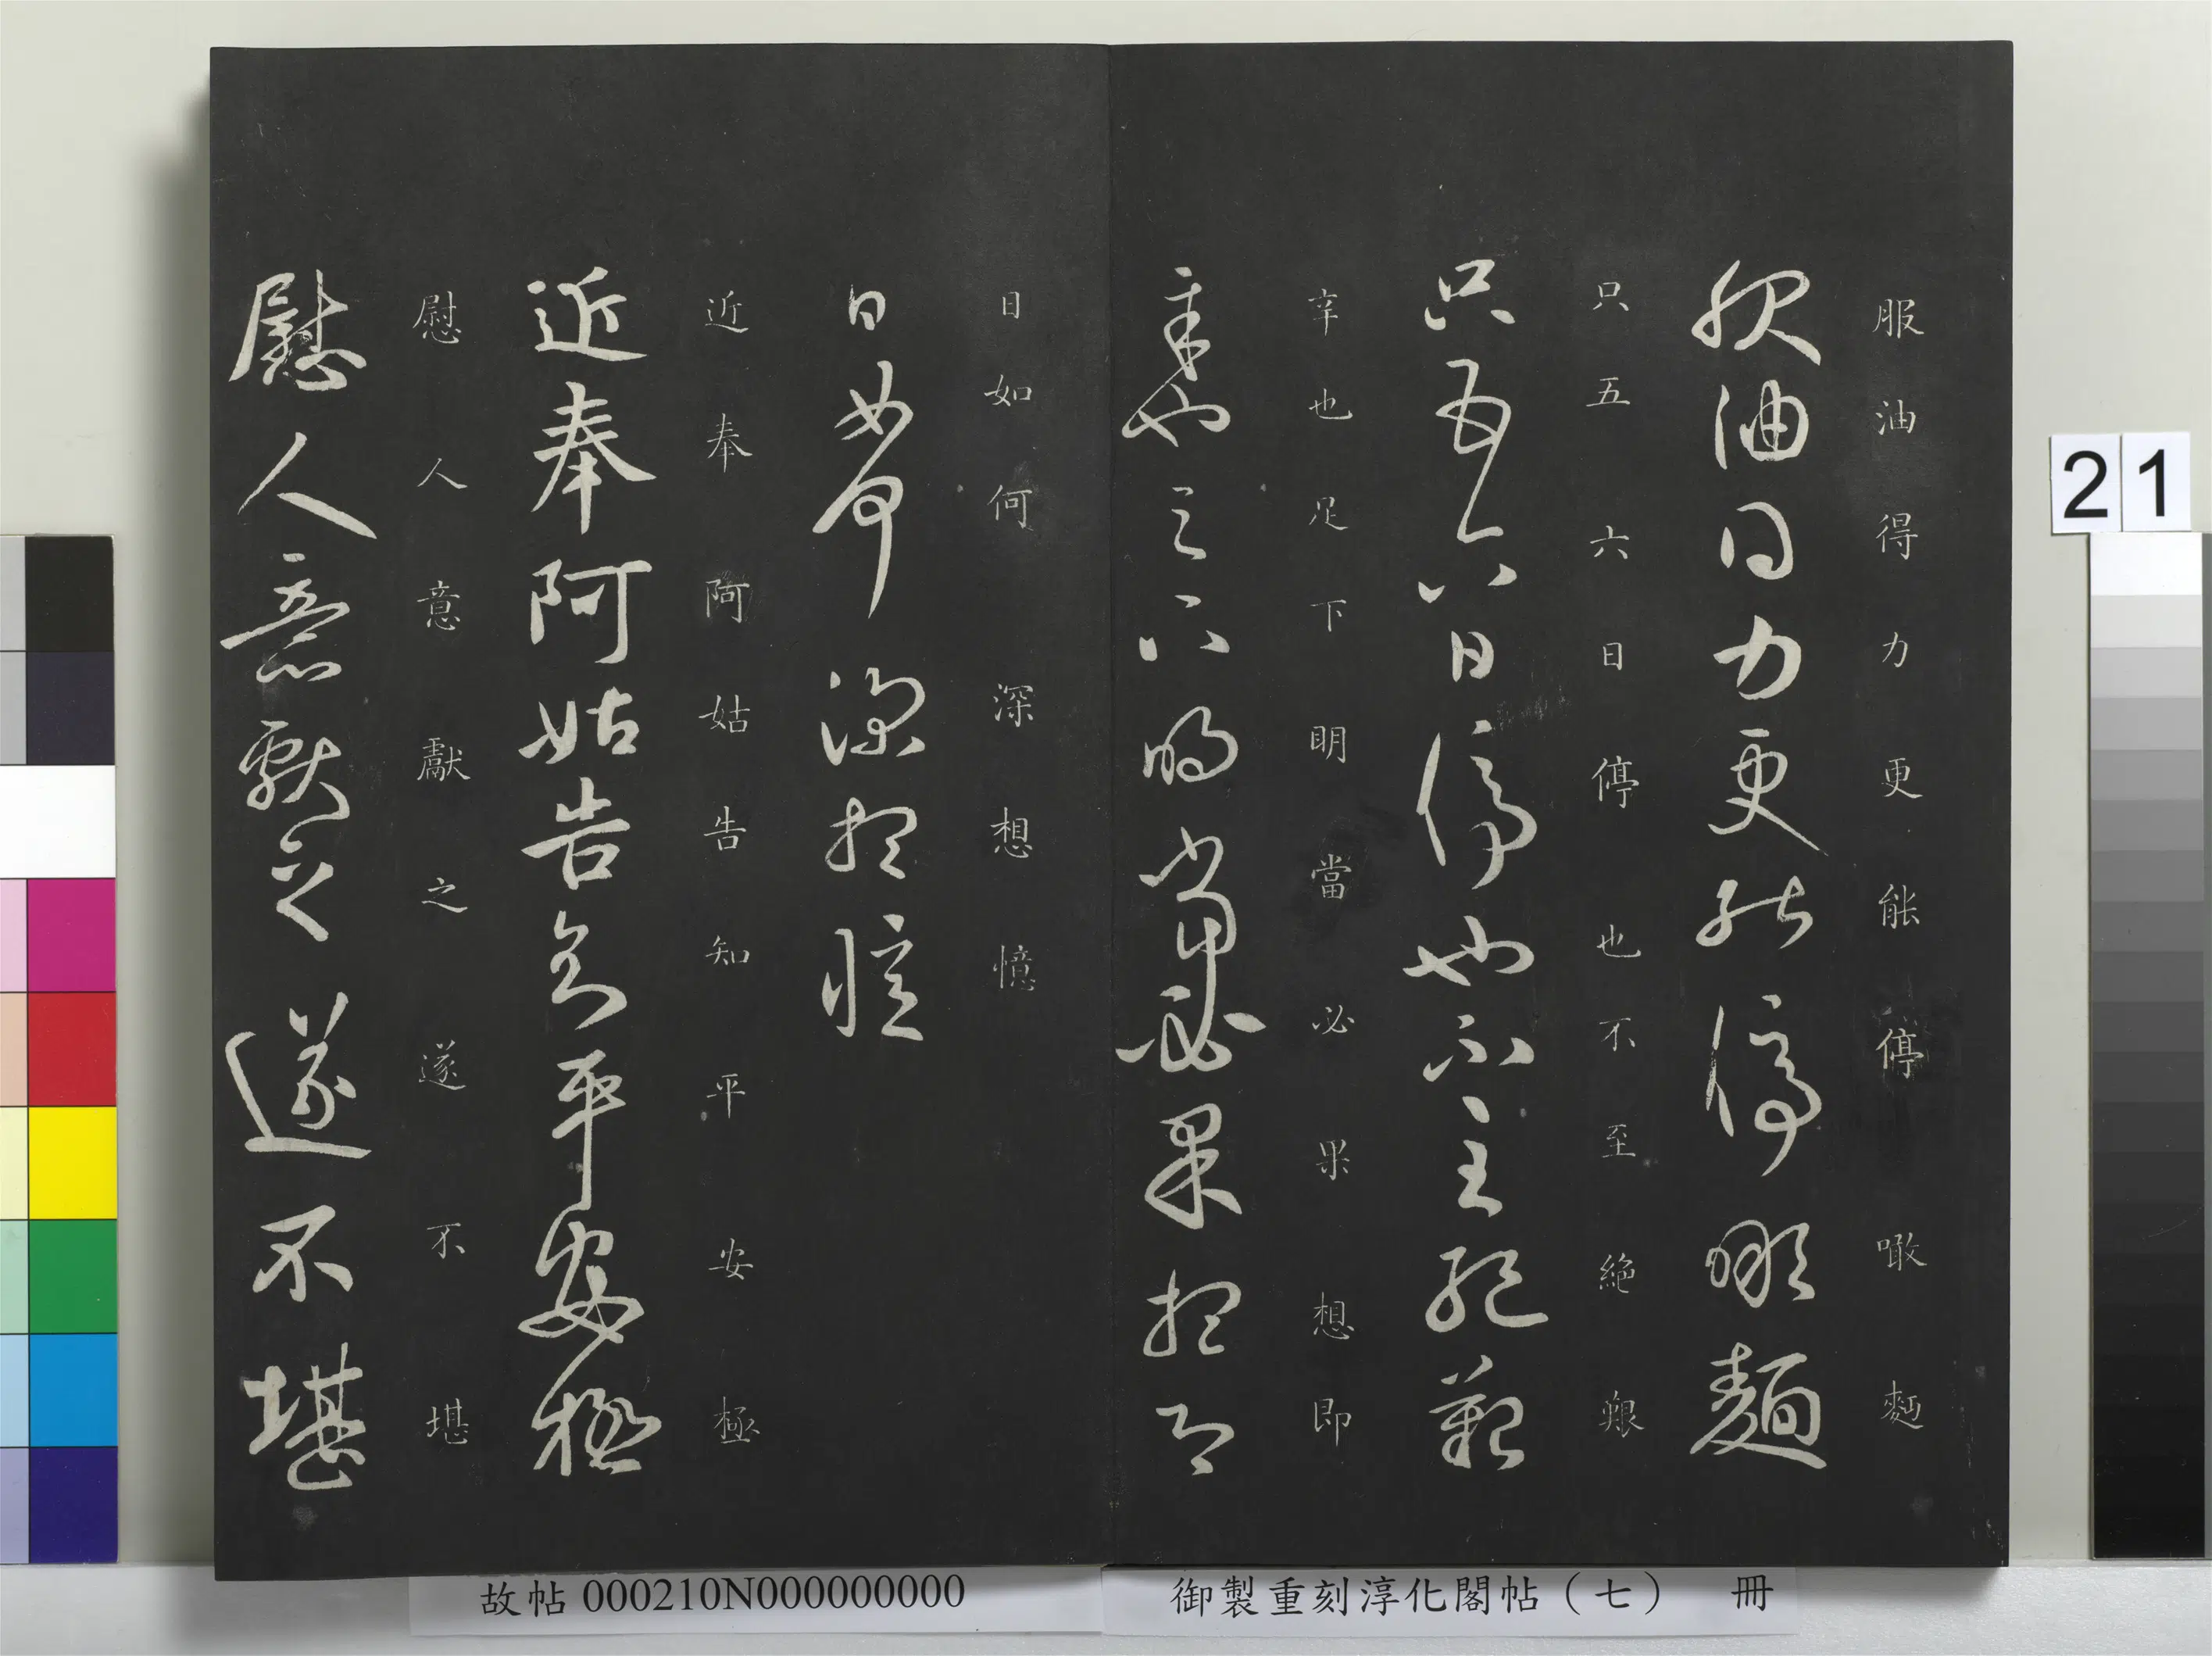 服油得力更能停噉麪
服油得力更能停噉麵
只五六日停也不至絶艱
只五六日停也不至絶艱
幸也足下明當必果想即
幸也足下明當必果想即
日如何深想憶
日如何深想憶
近奉阿姑告知平安極
近奉阿姑告知平安極
慰人意獻之遂不堪
慰人意獻之遂不堪
21
御製重刻淳化閣帖（七） 冊
故帖 000210N000000000